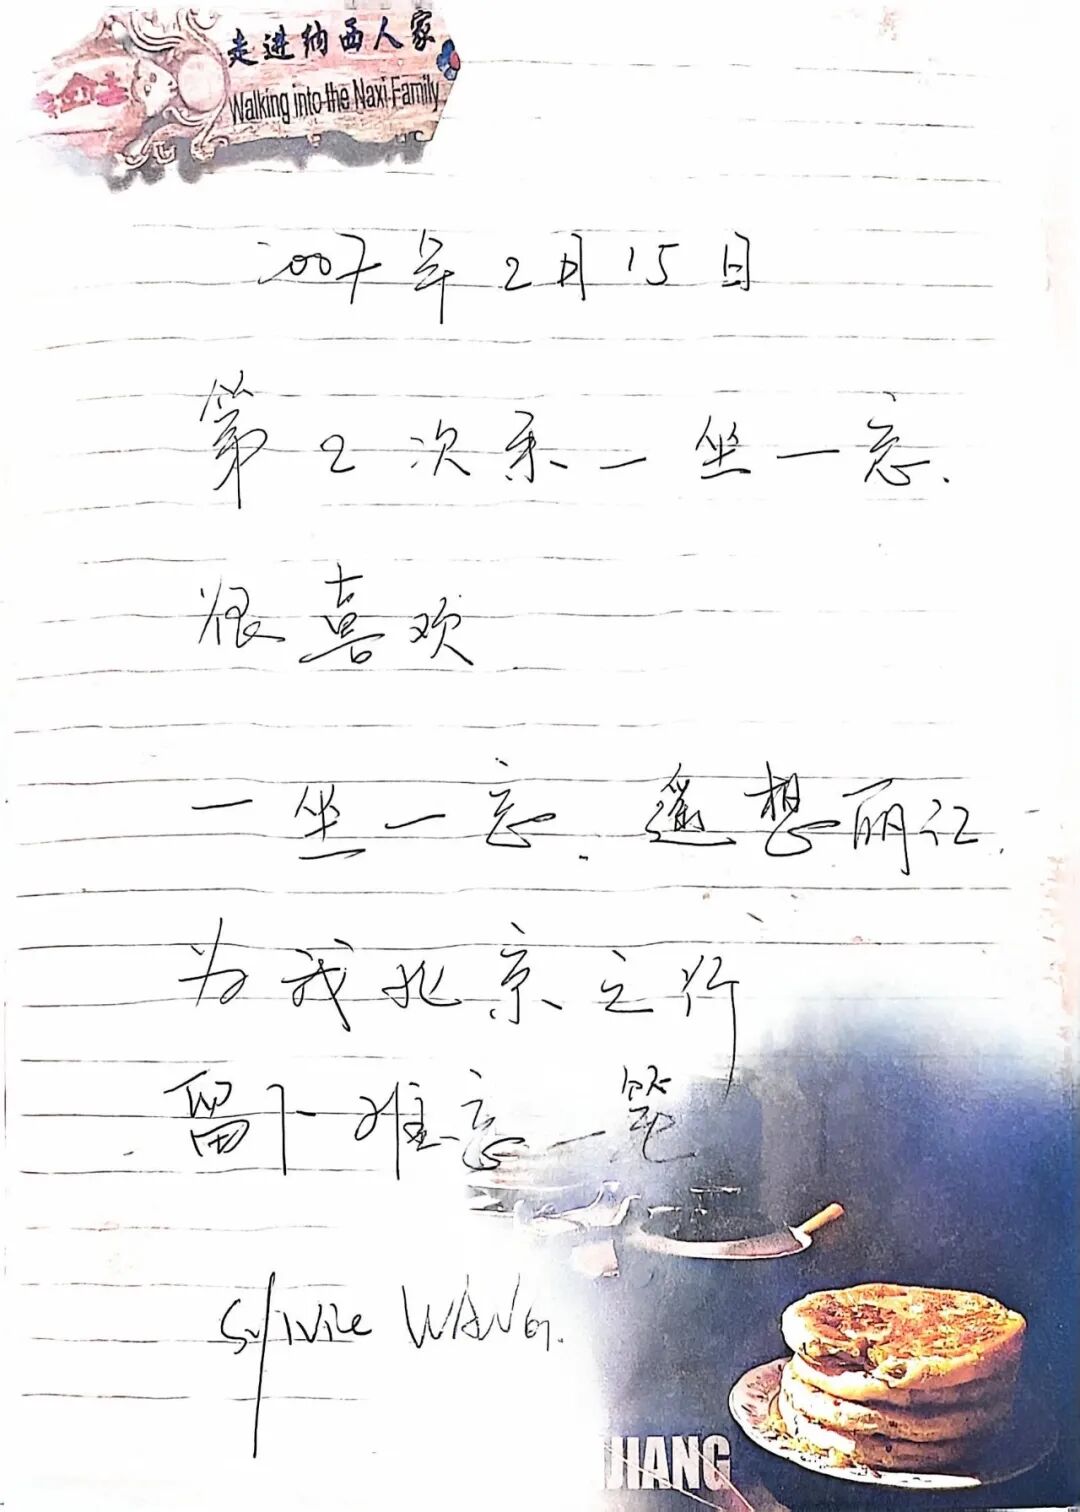 走进纳西人家
Walking into the Naxi Family
2007年2月15日
第2次来一坐一忘.
很喜欢
一坐一忘.遥想丽江.
为我北京之行
留下难忘一笔
Sylvie WANG.
JIANG